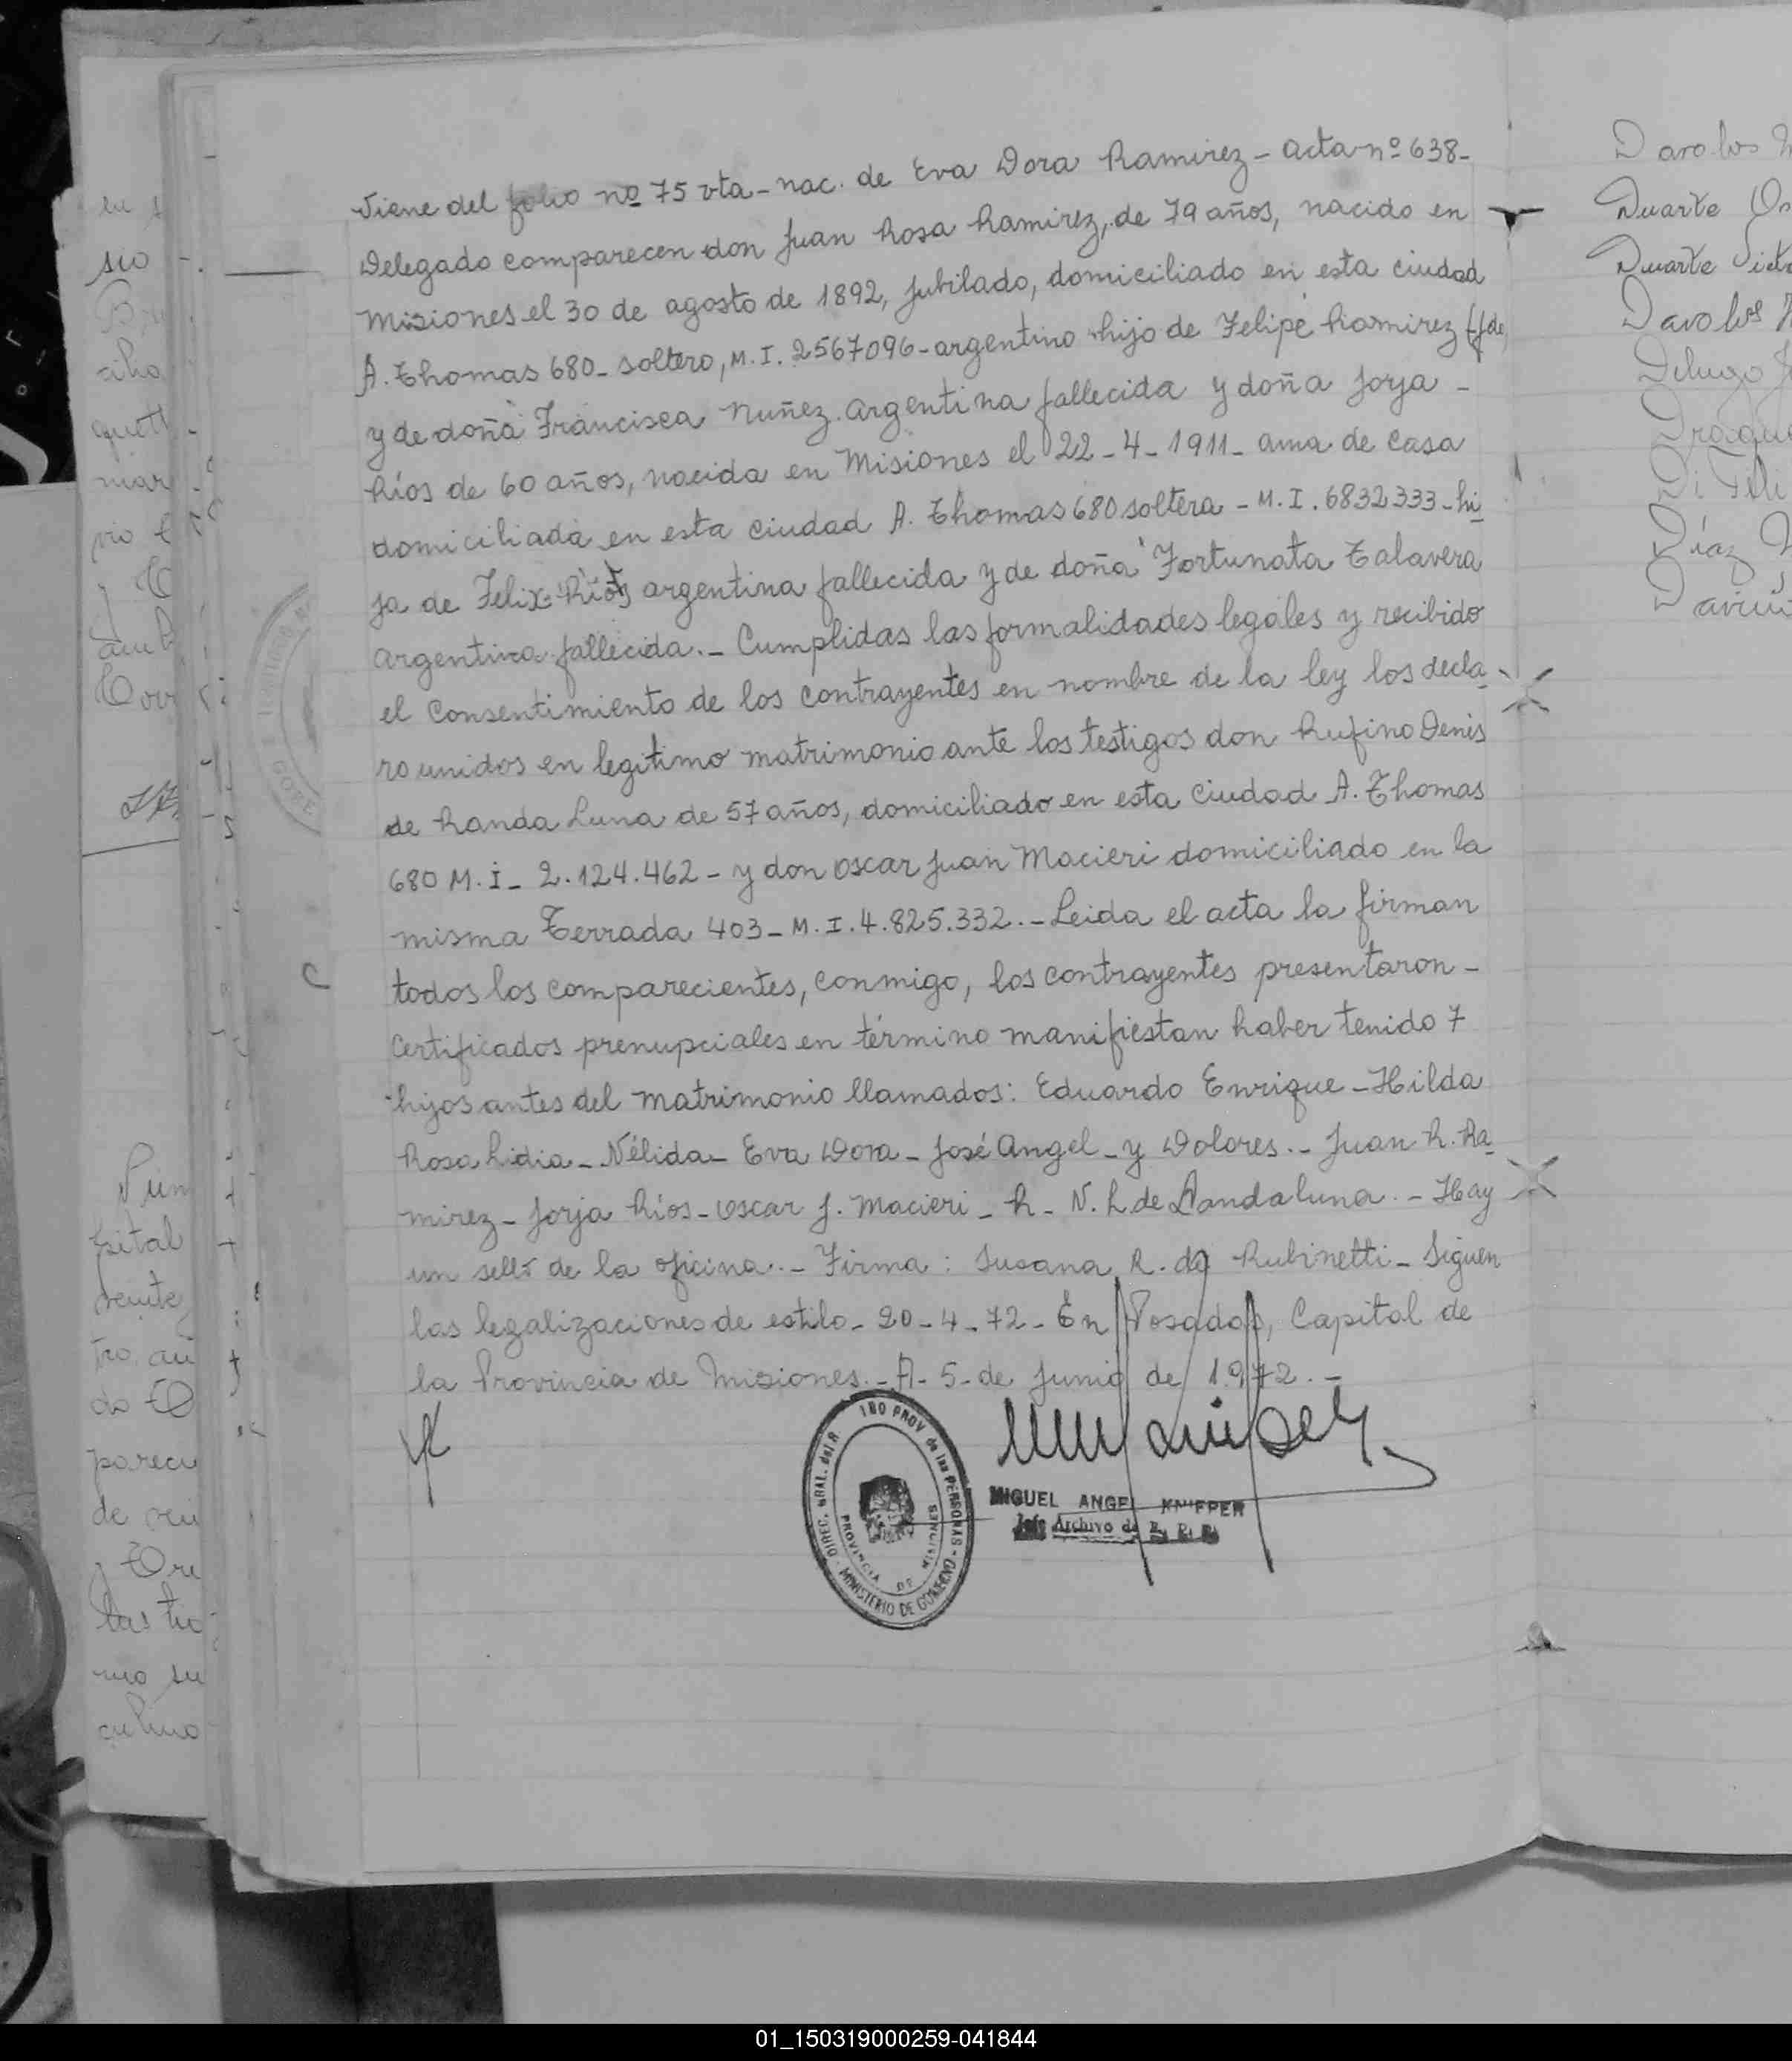 Viene del folio nº 75 vta - nac. de Eva Dora Ramirez - acta nº 638-
Delegado comparecen don Juan Rosa Ramirez, de 79 años, nacido en
Misiones el 30 de agosto de 1892, jubilado, domiciliado en esta ciudad
A. Thomas 680 - soltero, M. I. 2567096 - argentino hijo de Felipe Ramirez
y de doña Francisca Nuñez argentina fallecida y doña Jorja -
Ríos de 60 años, nacida en Misiones el 22 - 4 - 1911 - ama de casa
domiciliada en esta ciudad A. Thomas 680 soltera - M. I. 6832333 - hi
ja de Felix Ríos argentina fallecida y de doña Fortunata Talavera
argentina fallecida. - Cumplidas las formalidades legales y recibido
el consentimiento de los contrayentes en nombre de la ley los decla
ro unidos en legitimo matrimonio ante los testigos don Rufino Denis
de Landa Luna de 57 años, domiciliado en esta ciudad A. Thomas
680 M. I - 2.124.462 - y don Oscar Juan Macieri domiciliado en la
misma Terrada 403 - M. I. 4.825.332. - Leida el acta la firman
todos los comparecientes, conmigo, los contrayentes presentaron -
certificados prenupciales en término manifiestan haber tenido 7
hijos antes del matrimonio llamados: Eduardo Enrique - Hilda
Rosa Lidia - Nélida - Eva Dora - José Angel - y Dolores. - Juan R. Ra
mirez - Jorja Ríos - Oscar J. Macieri - R - N. L de Landaluna. - Hay
un sello de la oficina. - Firma: Susana R. de Rubinetti - Siguen
las legalizaciones de estilo - 20 - 4 - 72 - En Posadas, Capital de
la Provincia de Misiones. - A - 5 - de Junio de 1972. -
MIGUEL ANGEL KNIEPPER
Jefe Archivo de
PROVINCIA DE MISIONES
MINISTERIO DE GOBIERNO
Davalos
Duarte
Duarte
Davalos
Delugo
Di
Díaz
01_150319000259-041844